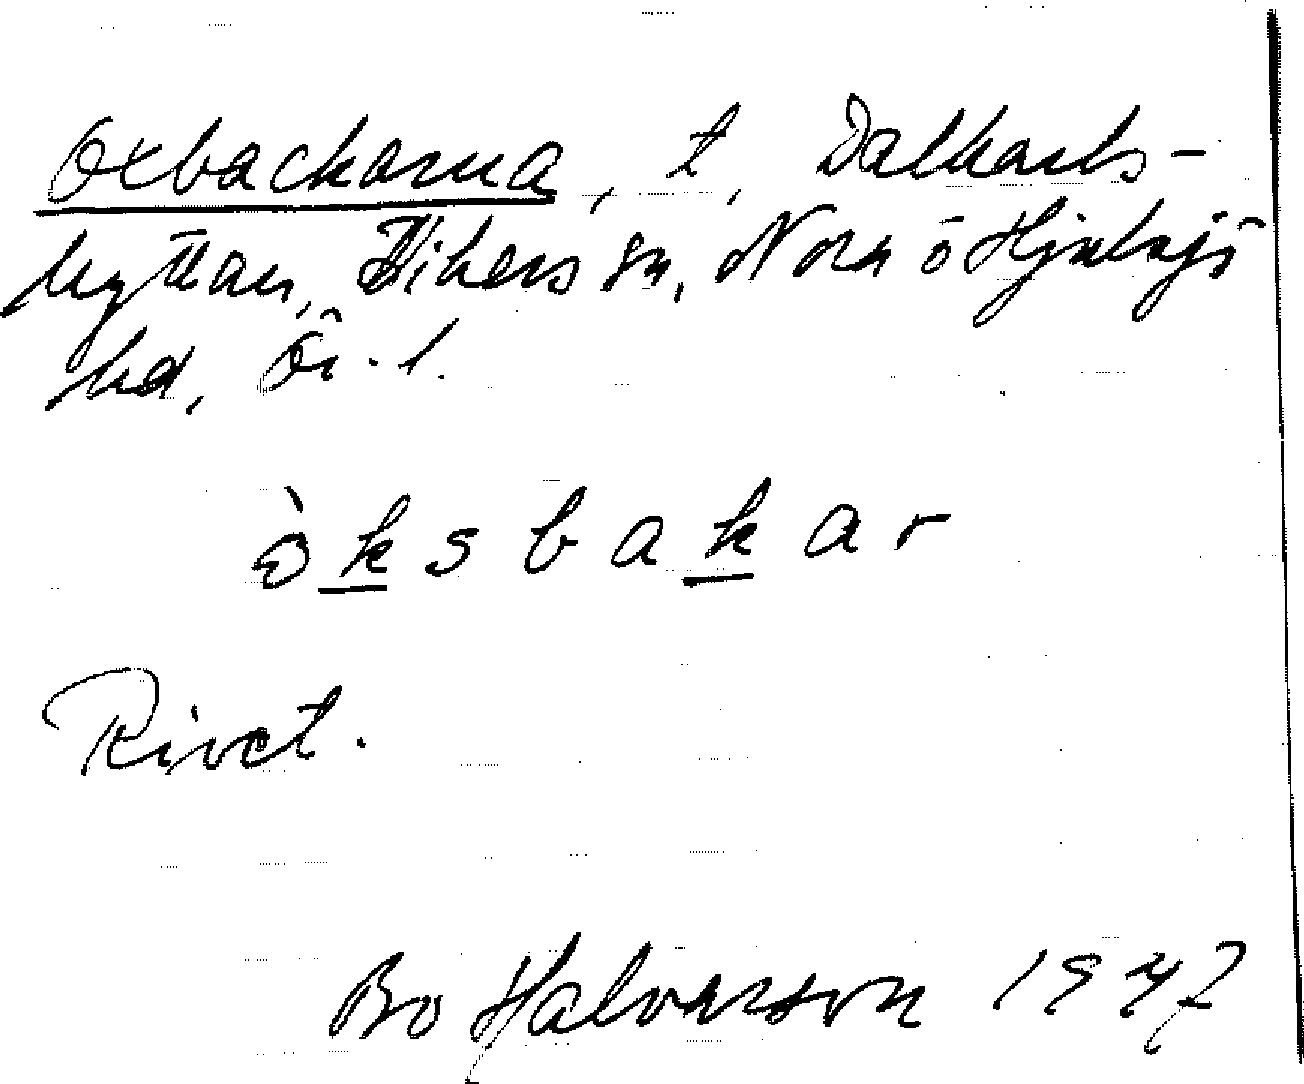 Oxbackarna, t, Dalkarls-
hyttan, Vikers sn, Nora ö Hjulsjö
hd, Ör. l.
ò̵ksbakar
Rivet.
Bo Halvarson 1947